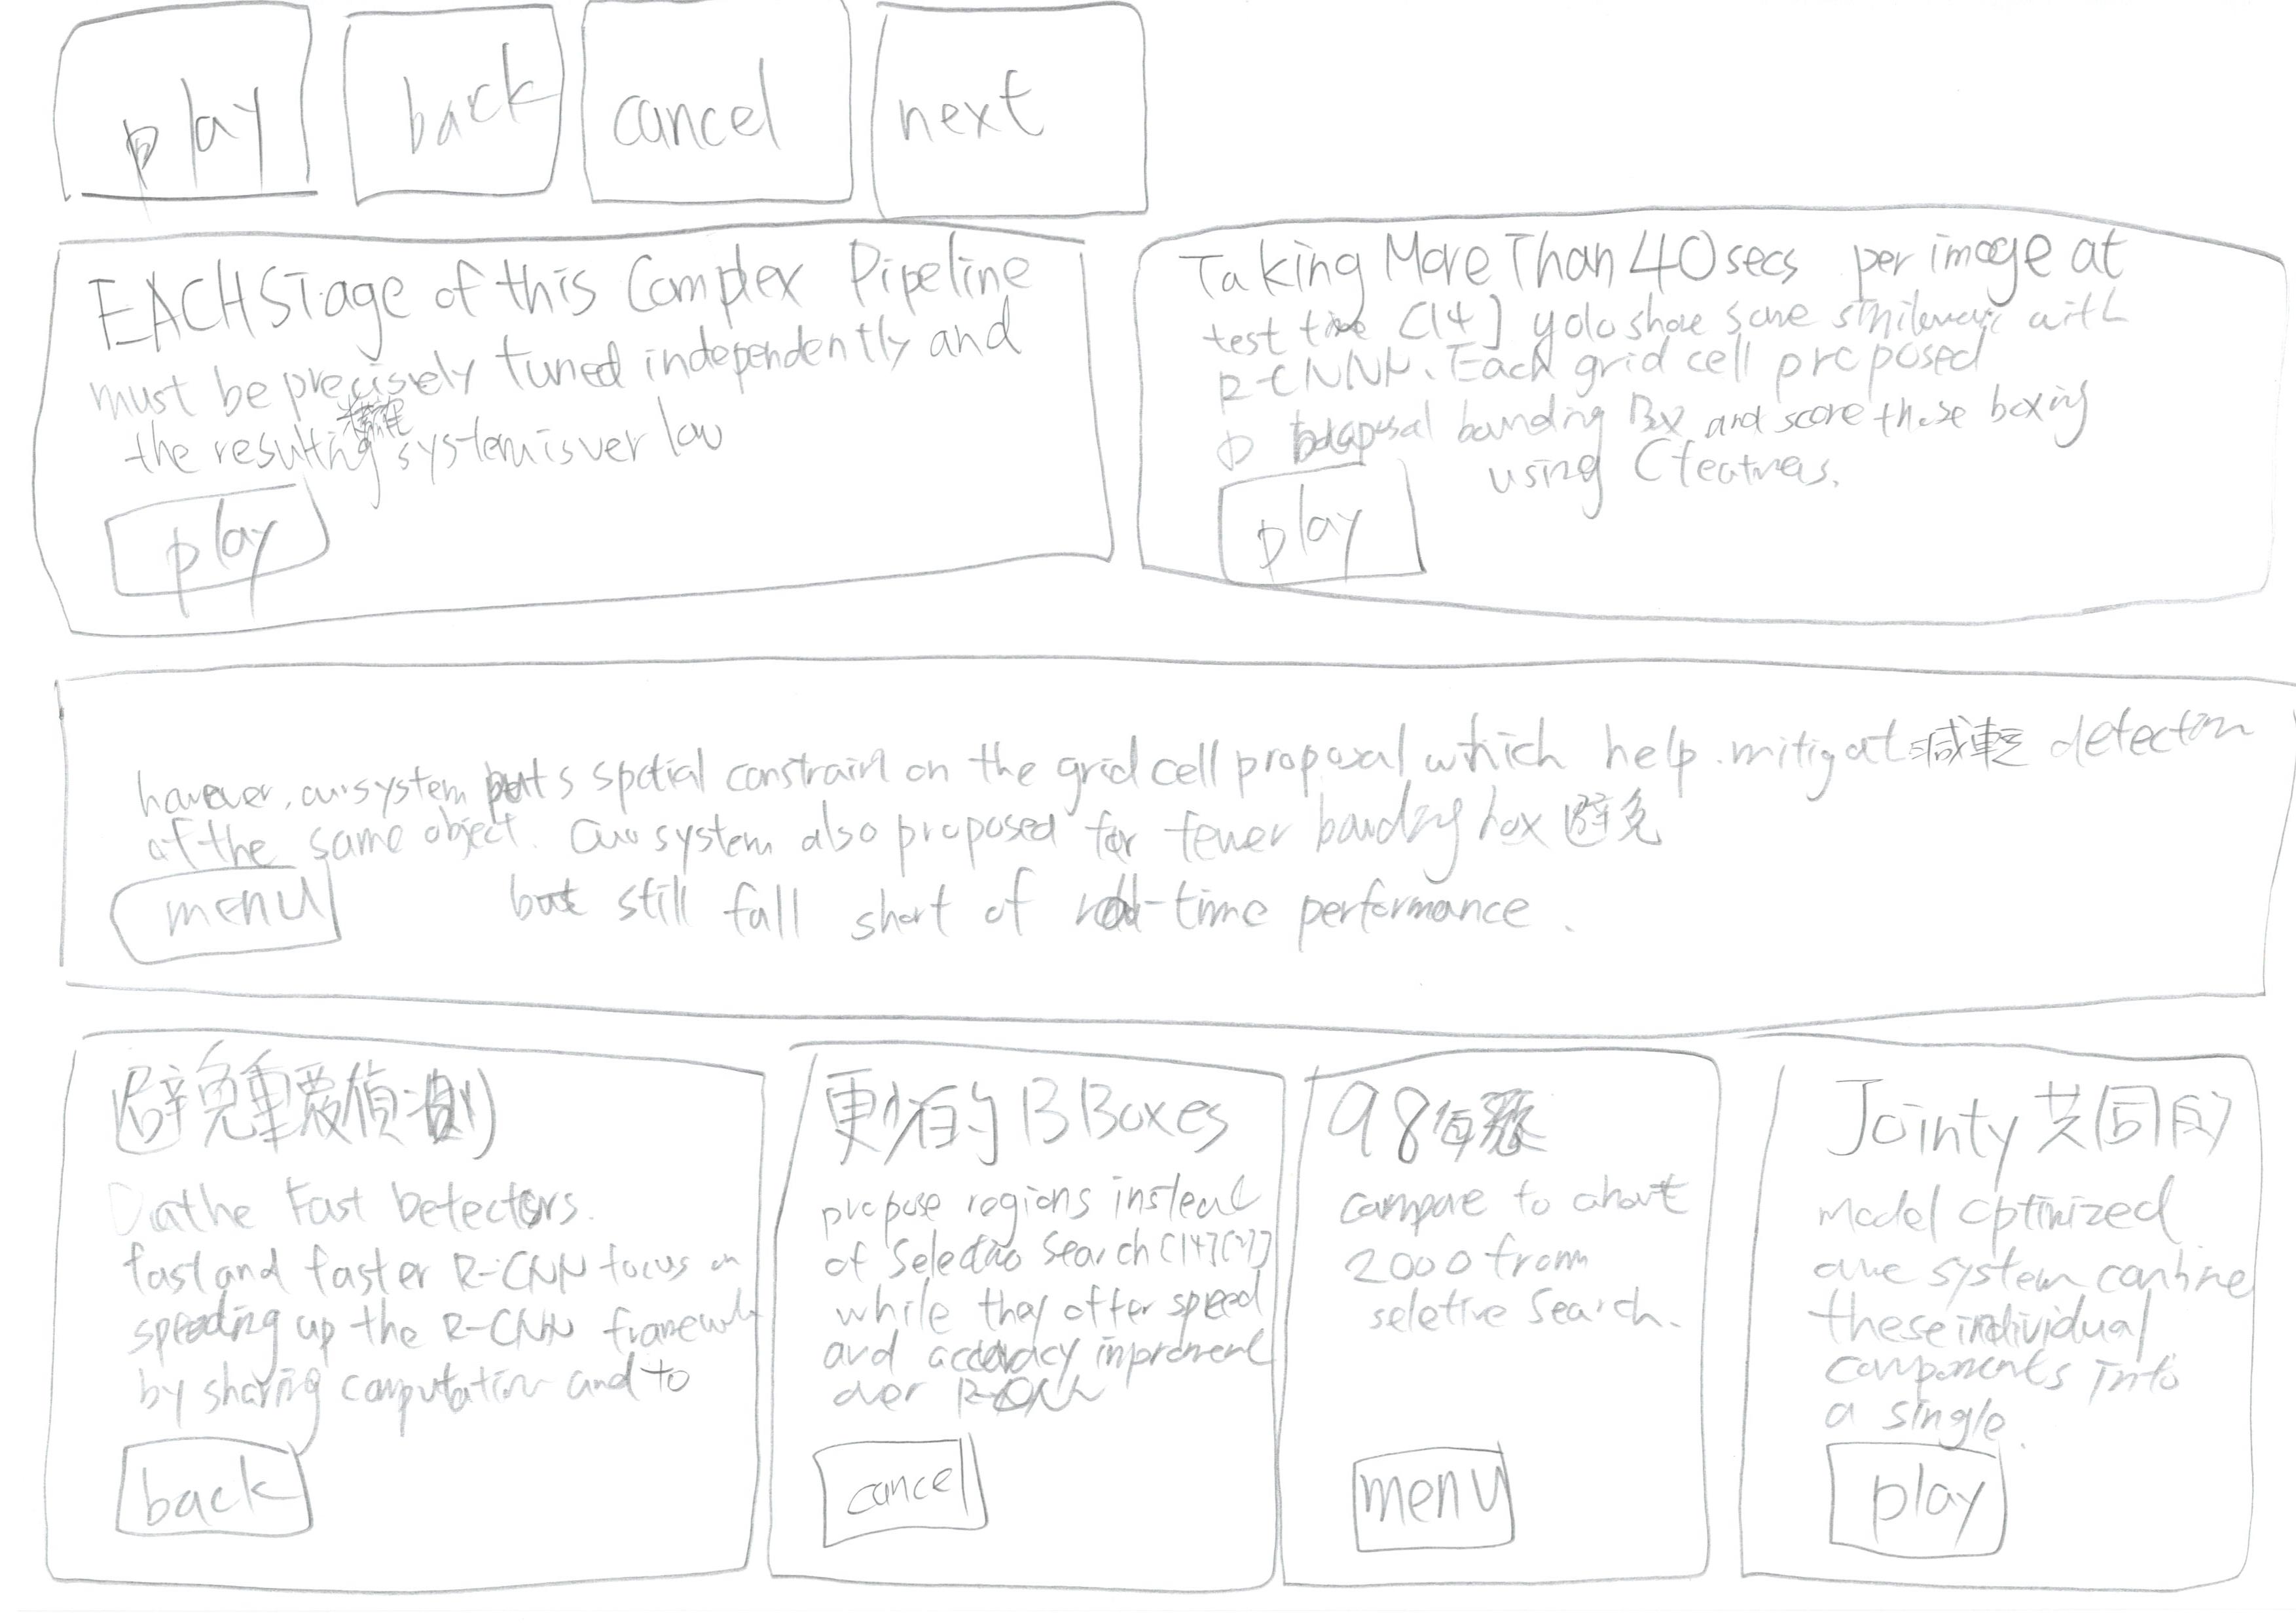 play
back
cancel
next
EACH Stage of this Complex Pipeline
must be precisely tuned independently and
the resulting system is ver low
play
Taking More Than 40 secs per image at
test time [14] yolo share some with
R-CNNN. Each grid cell proposed
bounding Box and score those boxing
using C featrues.
play
however, our system puts spatial constrain on the grid cell proposal which help mitigat 減輕 detection
of the same object. Our system also proposed far fewer bounding box 避免
but still fall short of real-time performance.
menu
避免重覆偵測
Oathe Fast Detectors.
fast and faster R-CNN focus on
speeding up the R-CNN framework
by sharing computation and to
back
更少的 B Boxes
propose regions instead
of Search [14]
while they offer speed
and accuracy improvement
over R-CNN
cancel
98 每張
compare to about
2000 from
seletive Search.
menu
Jointy 共同的
Model optimized
our system combine
these individual
components into
a single.
play